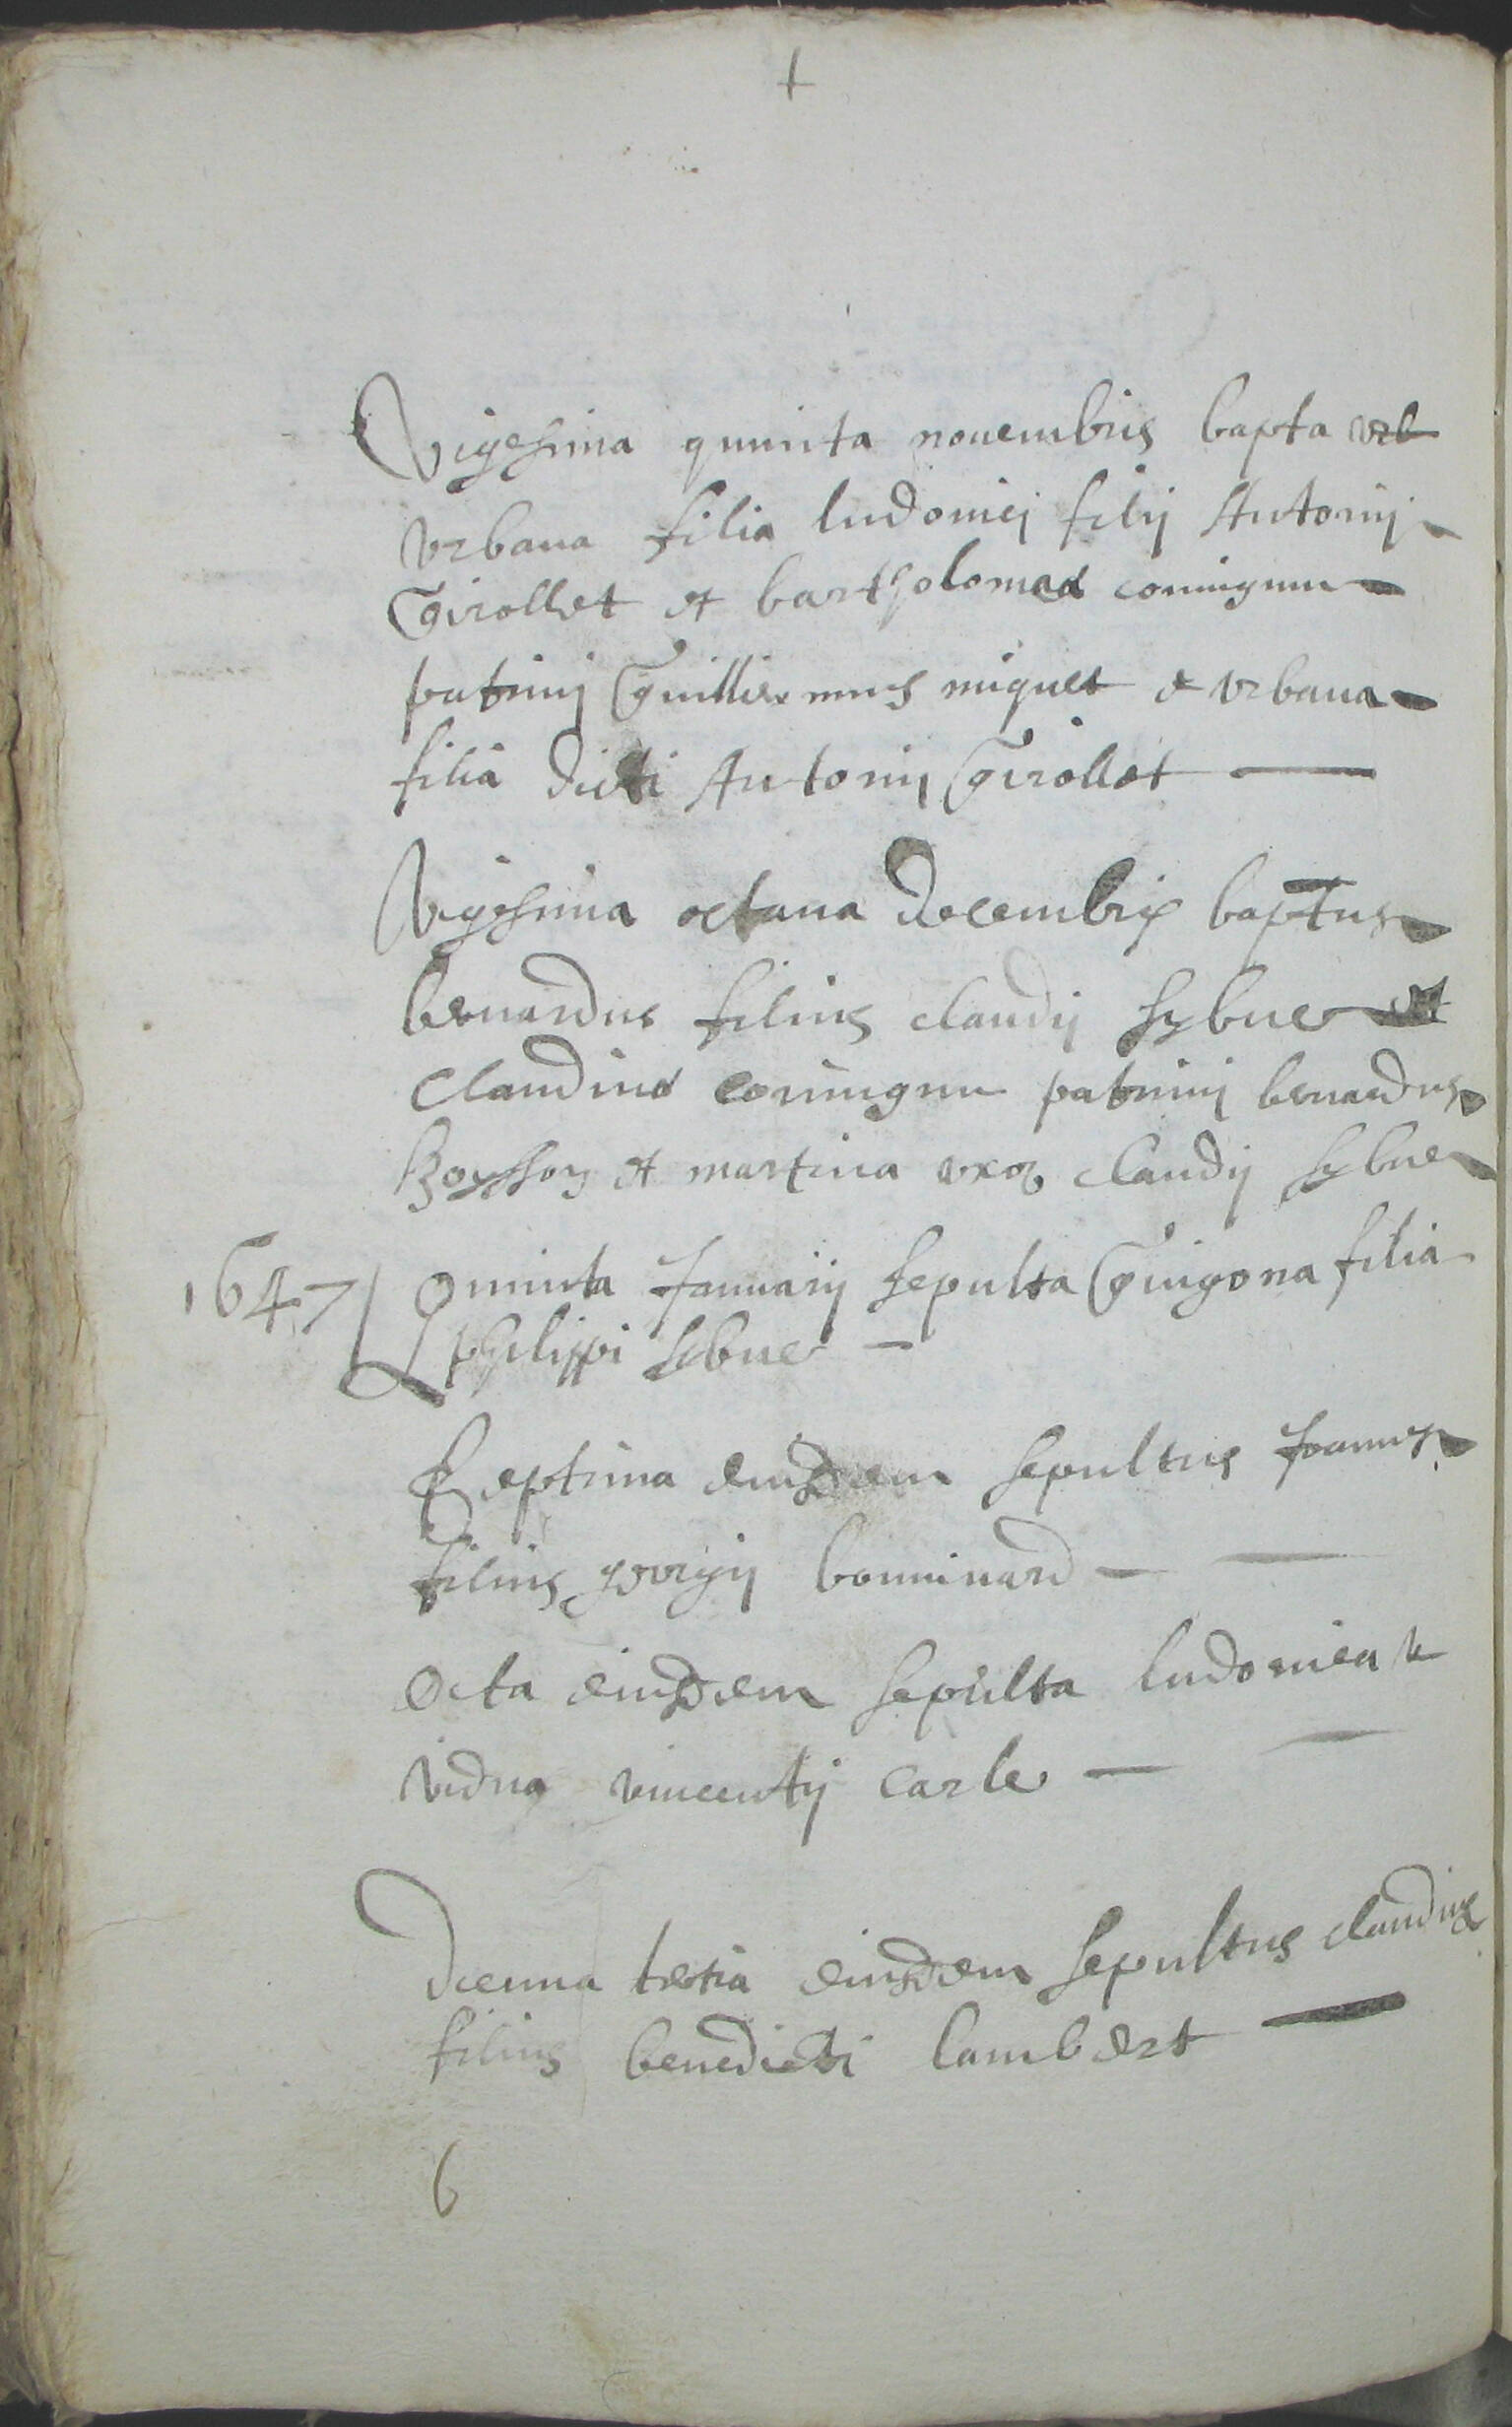 Vigesima quinta nouembris bapta vrb
vrbana filia ludouici filij Antonij
Girollet et bartholomeæ coniugum
patrinj Guillermus miquet et vrbana
filia dicti Antonij Girollet
Vigesima octaua decembris baptus
bernardus filius claudij sybue et
Claudinæ coniugum patrinj bernardus
Boysson et martina vxor claudij sybue
1647 Quinta Januarij sepulta Guigona filia
philippi sybue
Septima eiusdem sepultus Joannes
filius georgij bonninard
Octa eiusdem sepulta ludouica
vidua vincentij carle
decima tertia eiusdem sepultus claudius
filius benedicti lambert
6